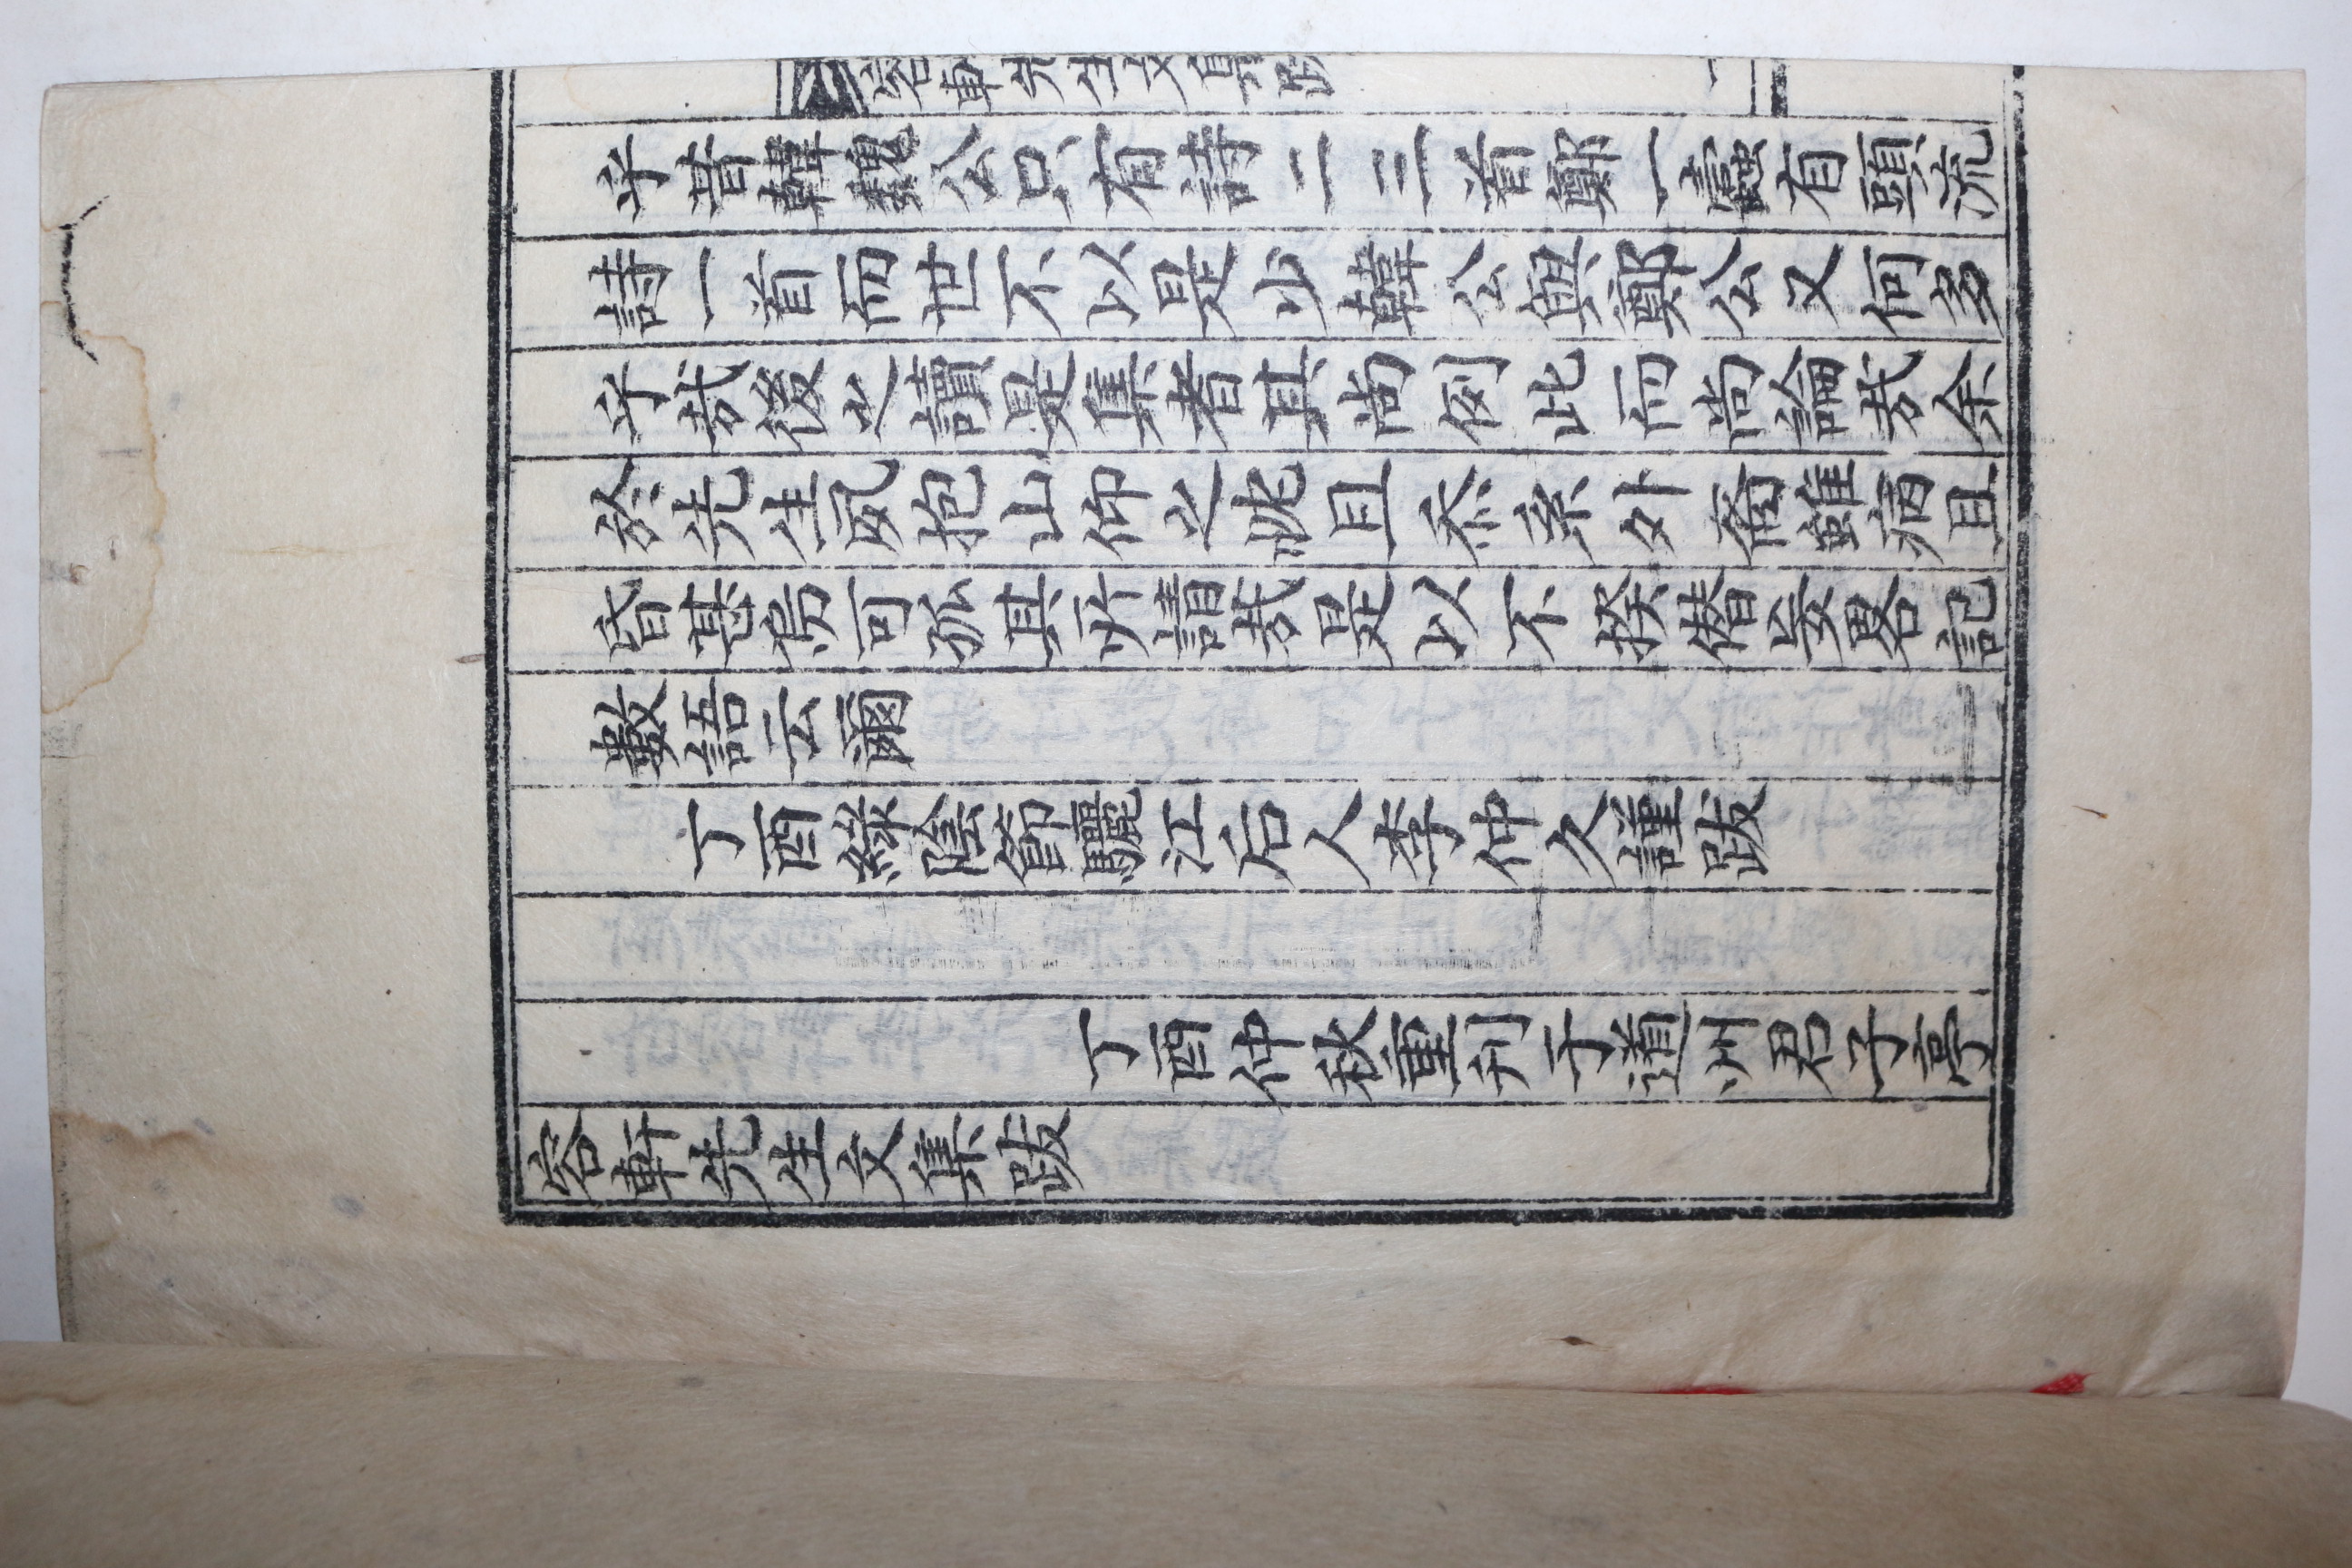 容軒先生文集跋 二
乎昔韓魏公只有詩二三首鄭一蠹有頭流
詩一首而世不以是少韓公與鄭公又何多
乎㢤後之讀是集者其尚例此而尚論㢤余
於先生夙抱山仰之眈且忝系外裔雖病且
昏甚烏可孤其所請㢤是以不揆僭妄畧記
數語云爾
丁酉綠陰節驪江后人李仲久謹跋
丁酉仲秋重刊于道州君子亭
容軒先生文集跋